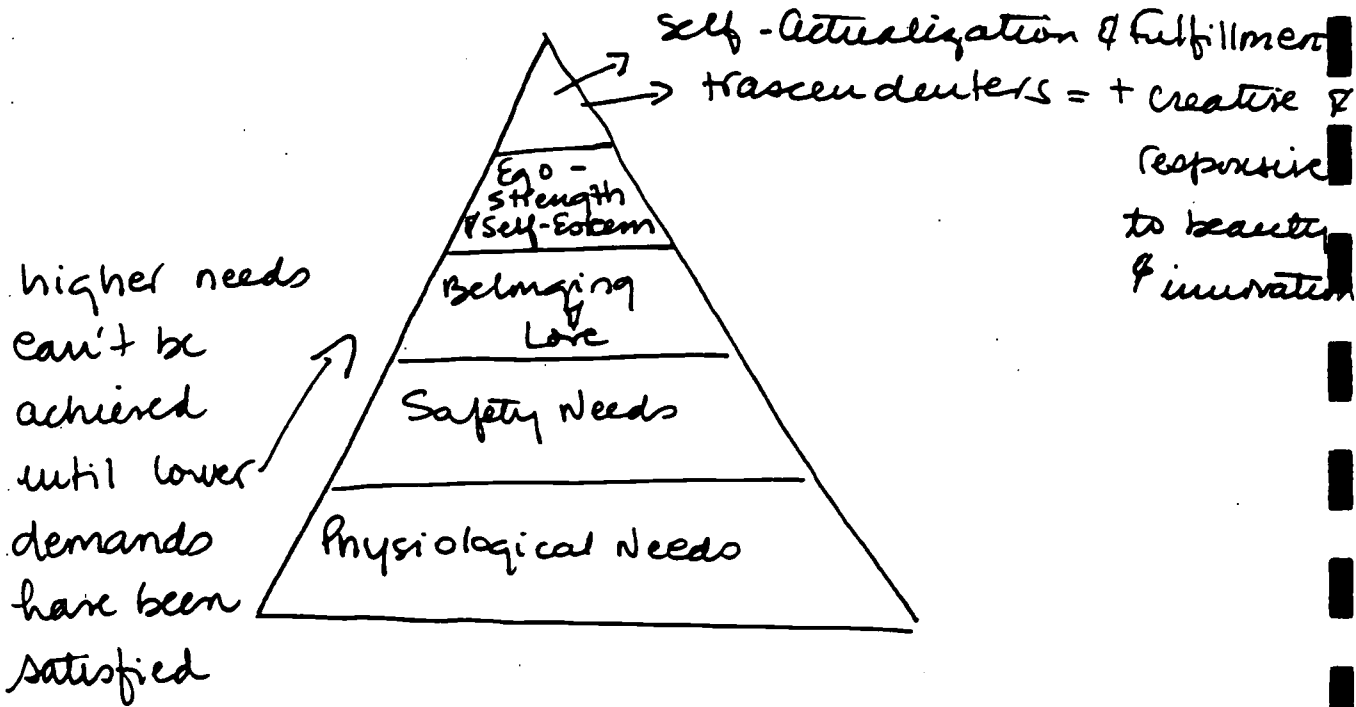 self-Actualization & Fulfillmen
trascendenters = + creative &
responsive
to beauty
& innovation
Ego -
strength
& Self-Esteem
Belonging
Love
Safety Needs
Physiological Needs
higher needs
can't be
achieved
until lower
demands
have been
satisfied